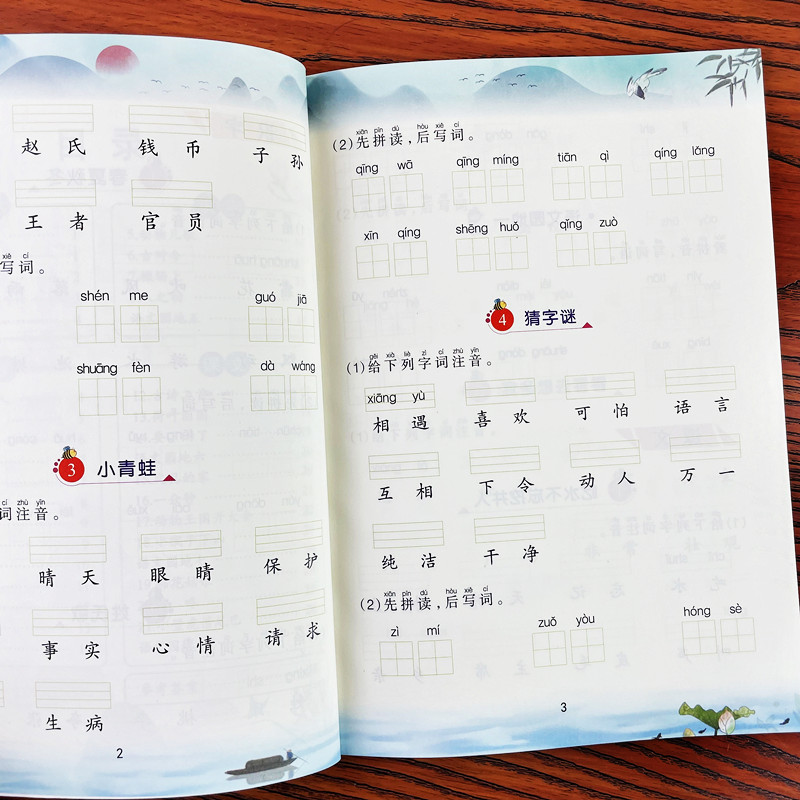 赵氏 钱币 子孙
王者 官员
xiě cí
写词。
shén me guó jiā
shuāng fèn dà wáng
3 小青蛙
cí zhù yīn
词注音。
晴天 眼睛 保护
事实 心情 请求
生病
2
xiān pīn dú hòu xiě cí
(2)先拼读,后写词。
qīng wā qīng míng tiān qì qíng lǎng
xīn qíng shēng huǒ qǐng zuò
4 猜字谜
gěi xià liè zì cí zhù yīn
(1)给下列字词注音。
xiāng yù
相遇 喜欢 可怕 语言
互相 下令 动人 万一
纯洁 干净
xiān pīn dú hòu xiě cí
(2)先拼读,后写词。
zì mí zuǒ yòu hóng sè
3